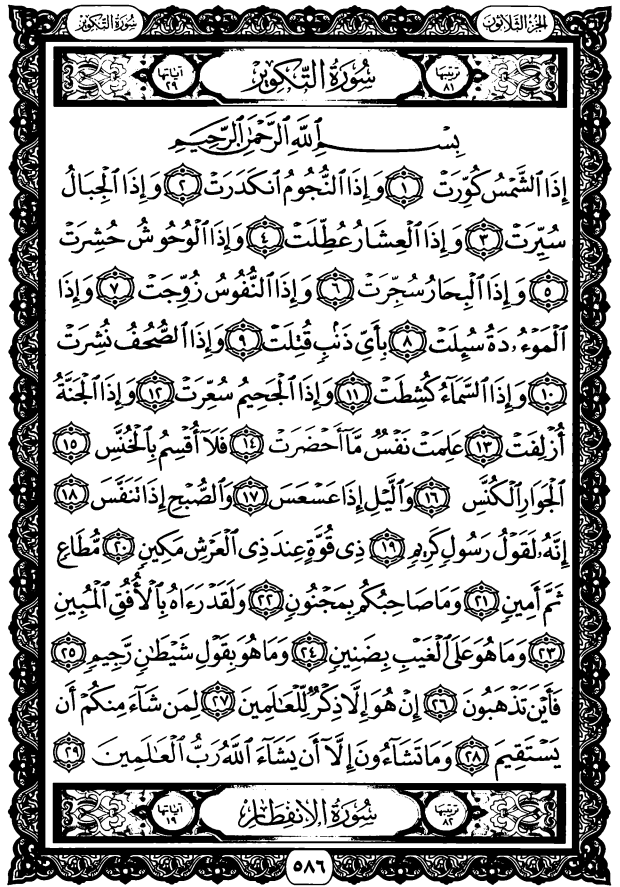 الجزء الثلاثون
سورة التكوير
ترتيبها ٨١
سُورَةُ التَّكْوِيرِ
آياتها ٢٩
بِسْمِ ٱللَّهِ ٱلرَّحْمَٰنِ ٱلرَّحِيمِ
إِذَا ٱلشَّمْسُ كُوِّرَتْ ١ وَإِذَا ٱلنُّجُومُ ٱنكَدَرَتْ ٢ وَإِذَا ٱلْجِبَالُ
سُيِّرَتْ ٣ وَإِذَا ٱلْعِشَارُ عُطِّلَتْ ٤ وَإِذَا ٱلْوُحُوشُ حُشِرَتْ
٥ وَإِذَا ٱلْبِحَارُ سُجِّرَتْ ٦ وَإِذَا ٱلنُّفُوسُ زُوِّجَتْ ٧ وَإِذَا
ٱلْمَوْءُۥدَةُ سُئِلَتْ ٨ بِأَيِّ ذَنۢبٍ قُتِلَتْ ٩ وَإِذَا ٱلصُّحُفُ نُشِرَتْ
١٠ وَإِذَا ٱلسَّمَآءُ كُشِطَتْ ١١ وَإِذَا ٱلْجَحِيمُ سُعِّرَتْ ١٢ وَإِذَا ٱلْجَنَّةُ
أُزْلِفَتْ ١٣ عَلِمَتْ نَفْسٌ مَّآ أَحْضَرَتْ ١٤ فَلَآ أُقْسِمُ بِٱلْخُنَّسِ ١٥
ٱلْجَوَارِ ٱلْكُنَّسِ ١٦ وَٱلَّيْلِ إِذَا عَسْعَسَ ١٧ وَٱلصُّبْحِ إِذَا تَنَفَّسَ ١٨
إِنَّهُۥ لَقَوْلُ رَسُولٍ كَرِيمٍ ١٩ ذِي قُوَّةٍ عِندَ ذِي ٱلْعَرْشِ مَكِينٍ ٢٠ مُّطَاعٍ
ثَمَّ أَمِينٍ ٢١ وَمَا صَاحِبُكُم بِمَجْنُونٍ ٢٢ وَلَقَدْ رَءَاهُ بِٱلْأُفُقِ ٱلْمُبِينِ
٢٣ وَمَا هُوَ عَلَى ٱلْغَيْبِ بِضَنِينٍ ٢٤ وَمَا هُوَ بِقَوْلِ شَيْطَٰنٍ رَّجِيمٍ ٢٥
فَأَيْنَ تَذْهَبُونَ ٢٦ إِنْ هُوَ إِلَّا ذِكْرٌ لِّلْعَٰلَمِينَ ٢٧ لِمَن شَآءَ مِنكُمْ أَن
يَسْتَقِيمَ ٢٨ وَمَا تَشَآءُونَ إِلَّآ أَن يَشَآءَ ٱللَّهُ رَبُّ ٱلْعَٰلَمِينَ ٢٩
ترتيبها ٨٢
سُورَةُ الانفِطَارِ
آياتها ١٩
٥٨٦